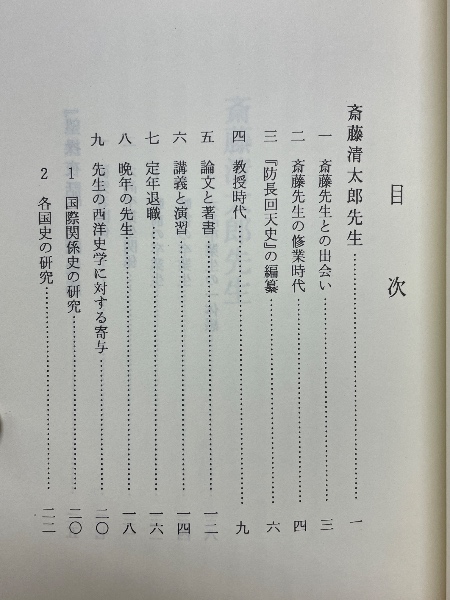 目次
斎藤清太郎先生……………………一
一 斎藤先生との出会い……………………三
二 斎藤先生の修業時代……………………四
三 『防長回天史』の編纂……………………六
四 教授時代……………………九
五 論文と著書……………………一二
六 講義と演習……………………一四
七 定年退職……………………一六
八 晩年の先生……………………一八
九 先生の西洋史学に対する寄与……………………二〇
1 国際関係史の研究……………………二〇
2 各国史の研究……………………二二